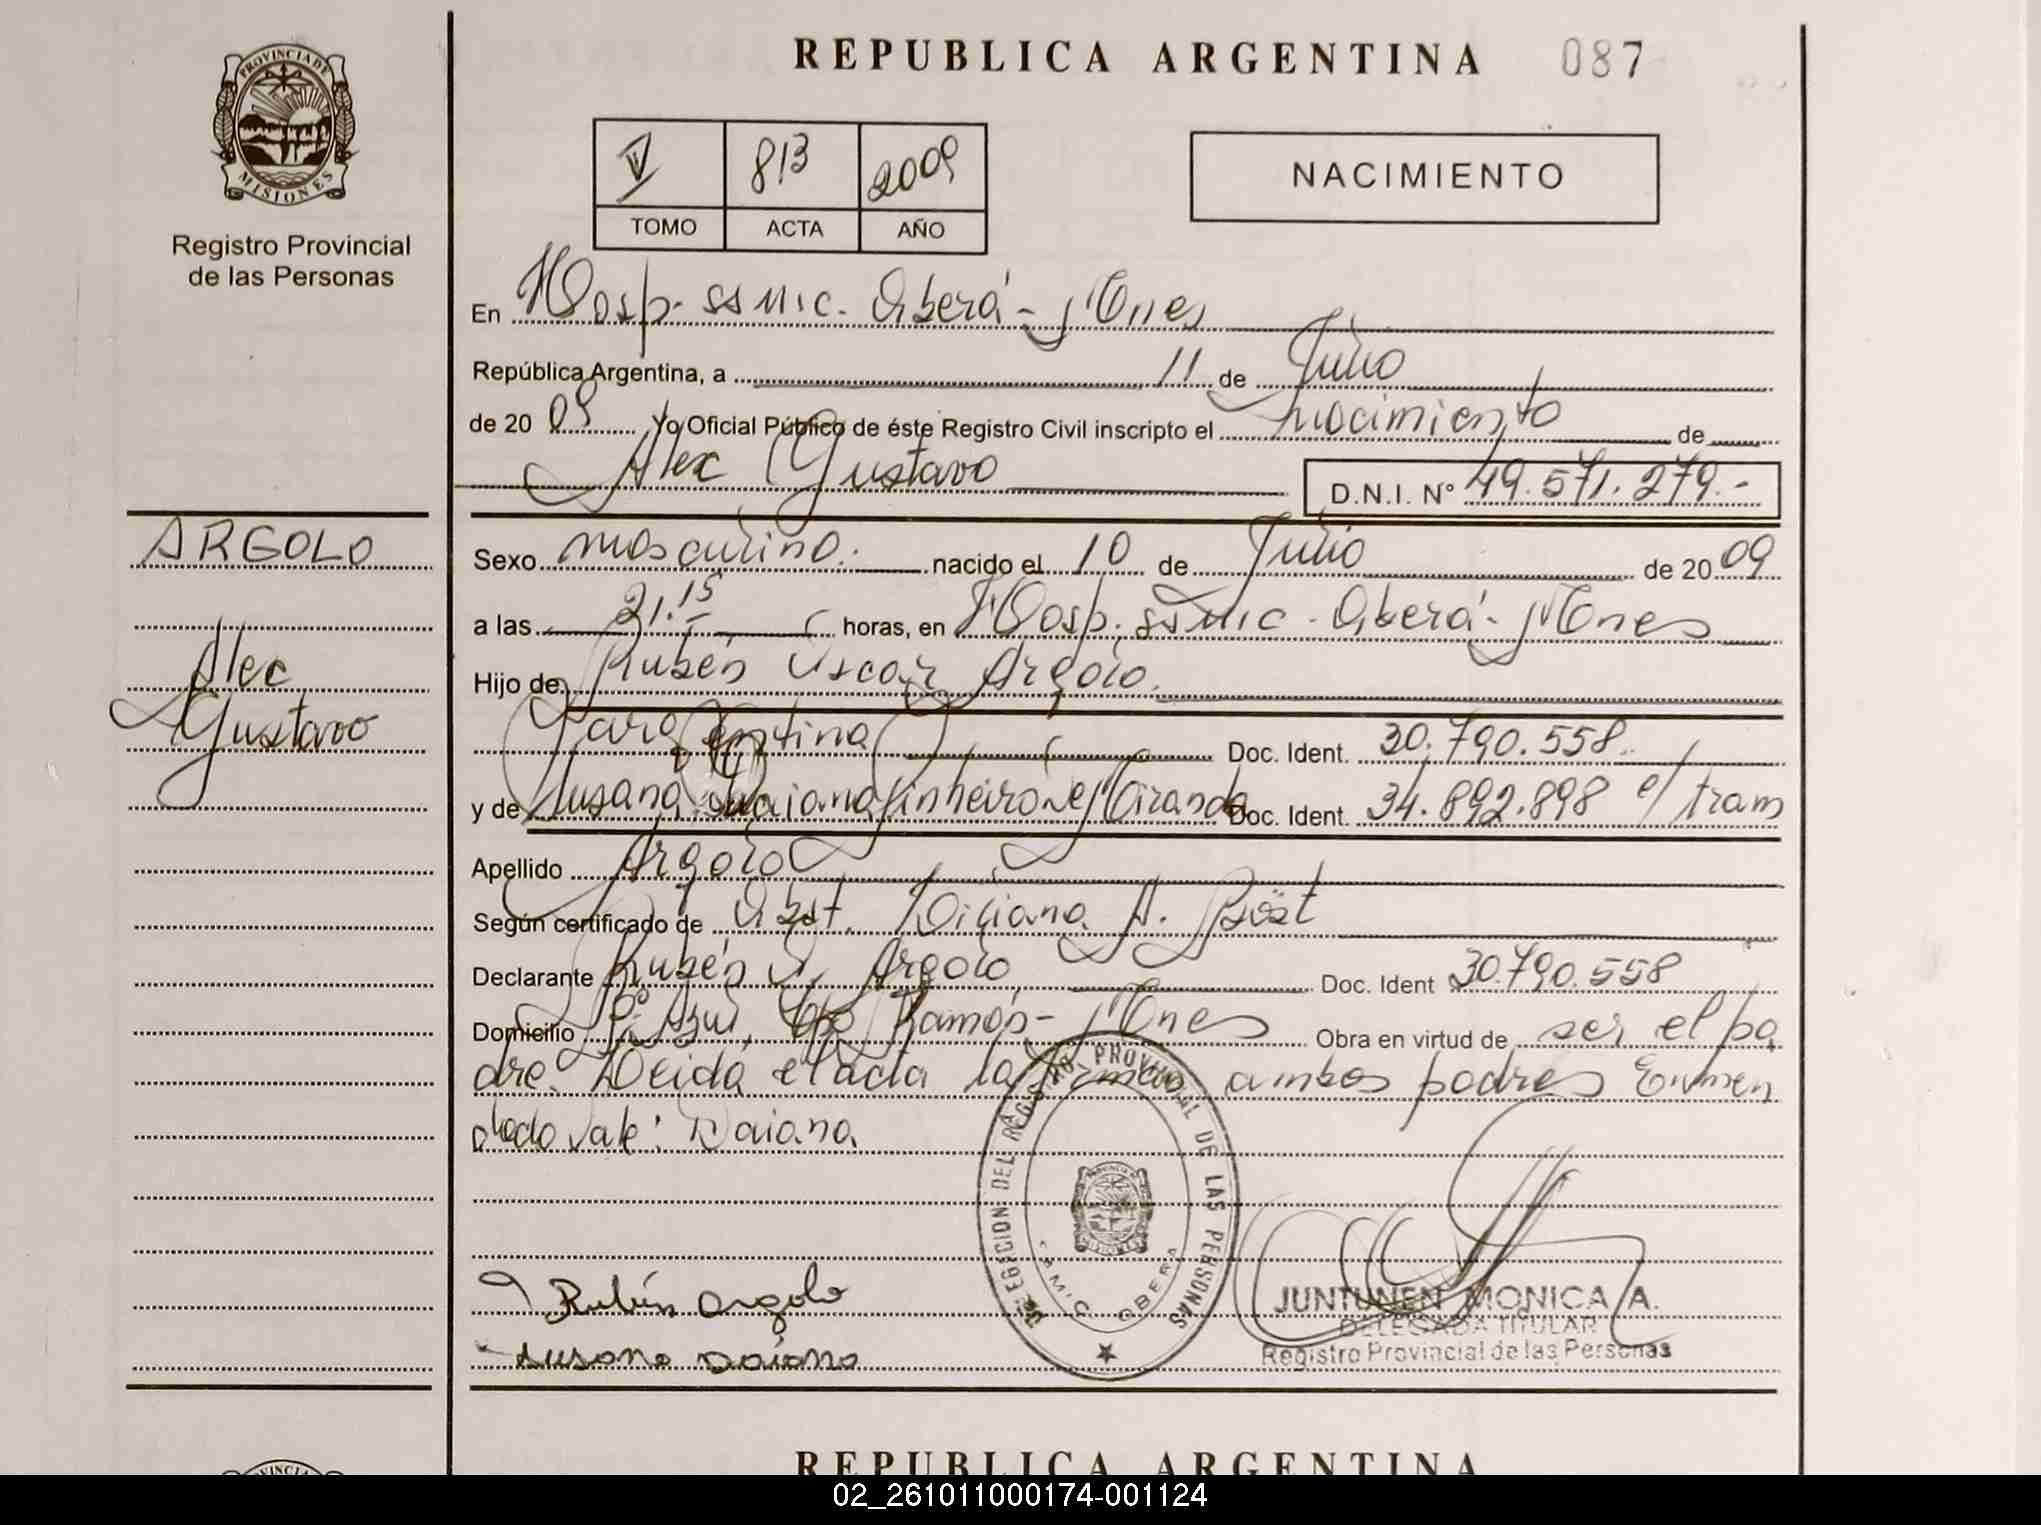 REPUBLICA ARGENTINA 087
PROVINCIA DE
MISIONES
Registro Provincial
de las Personas
V 813 2009
TOMO ACTA AÑO
NACIMIENTO
En Hosp. ssmic. Oberá - Mnes
República Argentina, a 11 de Julio
de 20 09 Yo Oficial Público de éste Registro Civil inscripto el nacimiento de
Alex Gustavo D.N.I. N° 49.571.279.-
ARGOLO
Alex
Gustavo
Sexo masculino. nacido el 10 de Julio de 20 09
a las 21.15 horas, en Hosp. ssmic - Oberá - Mnes
Hijo de Rubén Oscar Argolo.
argentina Doc. Ident. 30.790.558.
y de Susana Daiana Pinheiro de Miranda Doc. Ident. 34.892.898 e/ tram
Apellido Argolo
Según certificado de Obst. Viviana A.
Declarante Rubén O. Argolo Doc. Ident 30.790.558
Domicilio Po Azul, Cpo Ramón - Mnes Obra en virtud de ser el pa
dre. Leida el acta la firman ambos padres Enmen
dado vale: Daiana.
DIRECCION DEL REGISTRO PROVINCIAL DE LAS PERSONAS
OBERA
Rubén Argolo
Susana Daiana
JUNTUNEN MONICA A.
DELEGADA TITULAR
Registro Provincial de las Personas
REPUBLICA ARGENTINA
02_261011000174-001124